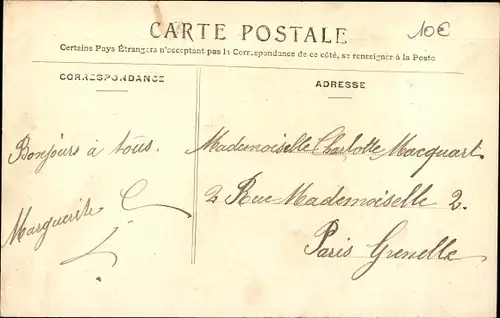 CARTE POSTALE
10€
Certains Pays Étrangers n'acceptant pas la Correspondance de ce côté, se renseigner à la Poste
CORRESPONDANCE
ADRESSE
Bonjours à tous.
Marguerite
Mademoiselle Charlotte Macquart
2 Rue Mademoiselle 2.
Paris Grenelle